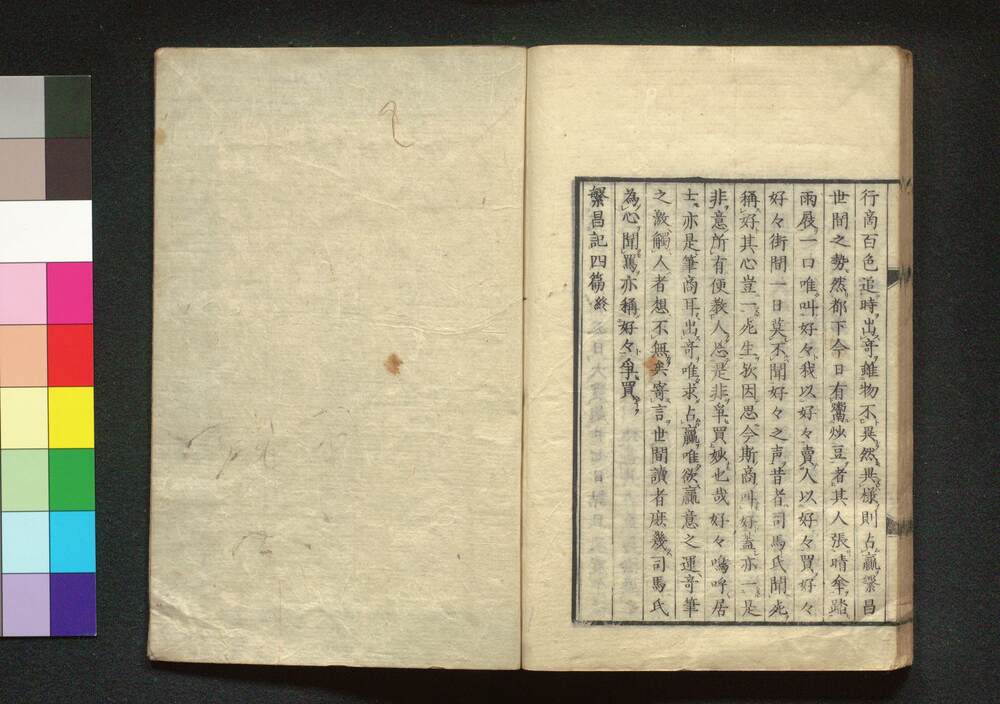 行商百色追時出奇雖物不異然異樣則占贏繁昌
世間之勢然都下今日有鬻炒豆者其人張晴傘踏
雨屐一口唯叫好々我以好々賣人以好々買好々
好々街間一日莫不聞好々之声昔者司馬氏聞死
稱好其心豈一死生欤因思今斯商叫好蓋亦一是
非意所有便教人忘是非爭買妙也哉好々嗚呼居
士亦是筆商耳出奇唯求占贏唯欲贏意之運奇筆
之激觸人者想不無矣寄言世間讀者庶幾司馬氏
為心聞罵亦稱好々爭買
繁昌記四篇終